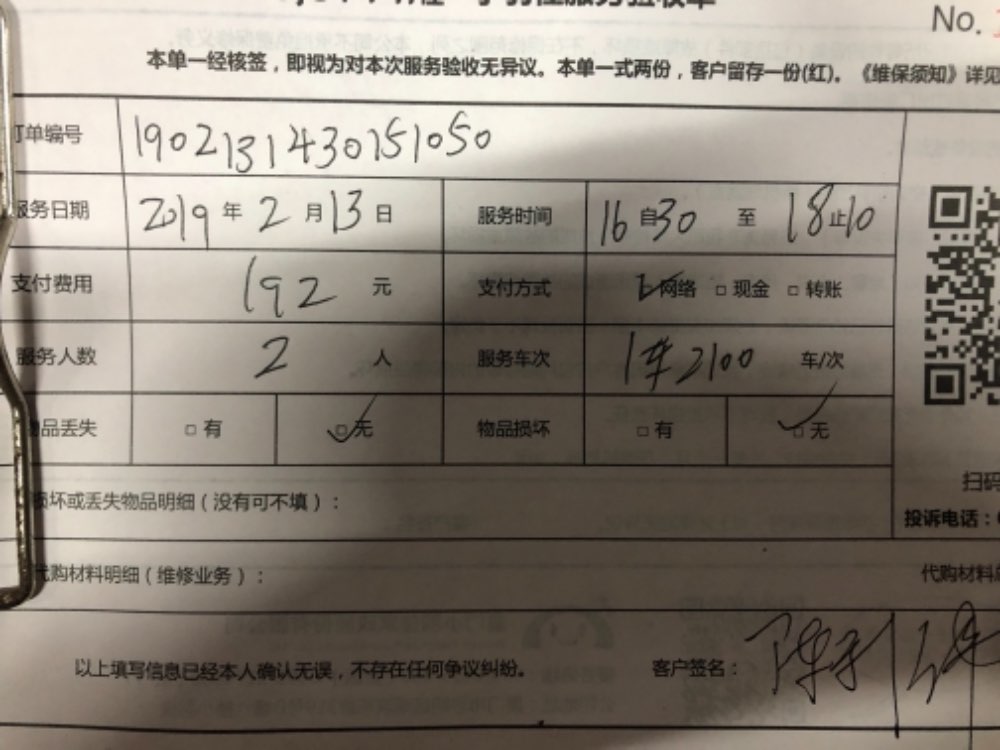 服务验收单
No.
本单一经核签，即视为对本次服务验收无异议。本单一式两份，客户留存一份(红)。《维保须知》详见
订单编号 1902131430151050
服务日期 2019 年 2 月 13 日 服务时间 16 自 30 至 18 止 10
支付费用 192 元 支付方式 ☑网络 □现金 □转账
服务人数 2 人 服务车次 1车2100 车/次
物品丢失 □有 ☑无 物品损坏 □有 ☑无
扫码
损坏或丢失物品明细（没有可不填）：
投诉电话：
代购材料明细（维修业务）： 代购材料
以上填写信息已经本人确认无误，不存在任何争议纠纷。 客户签名：